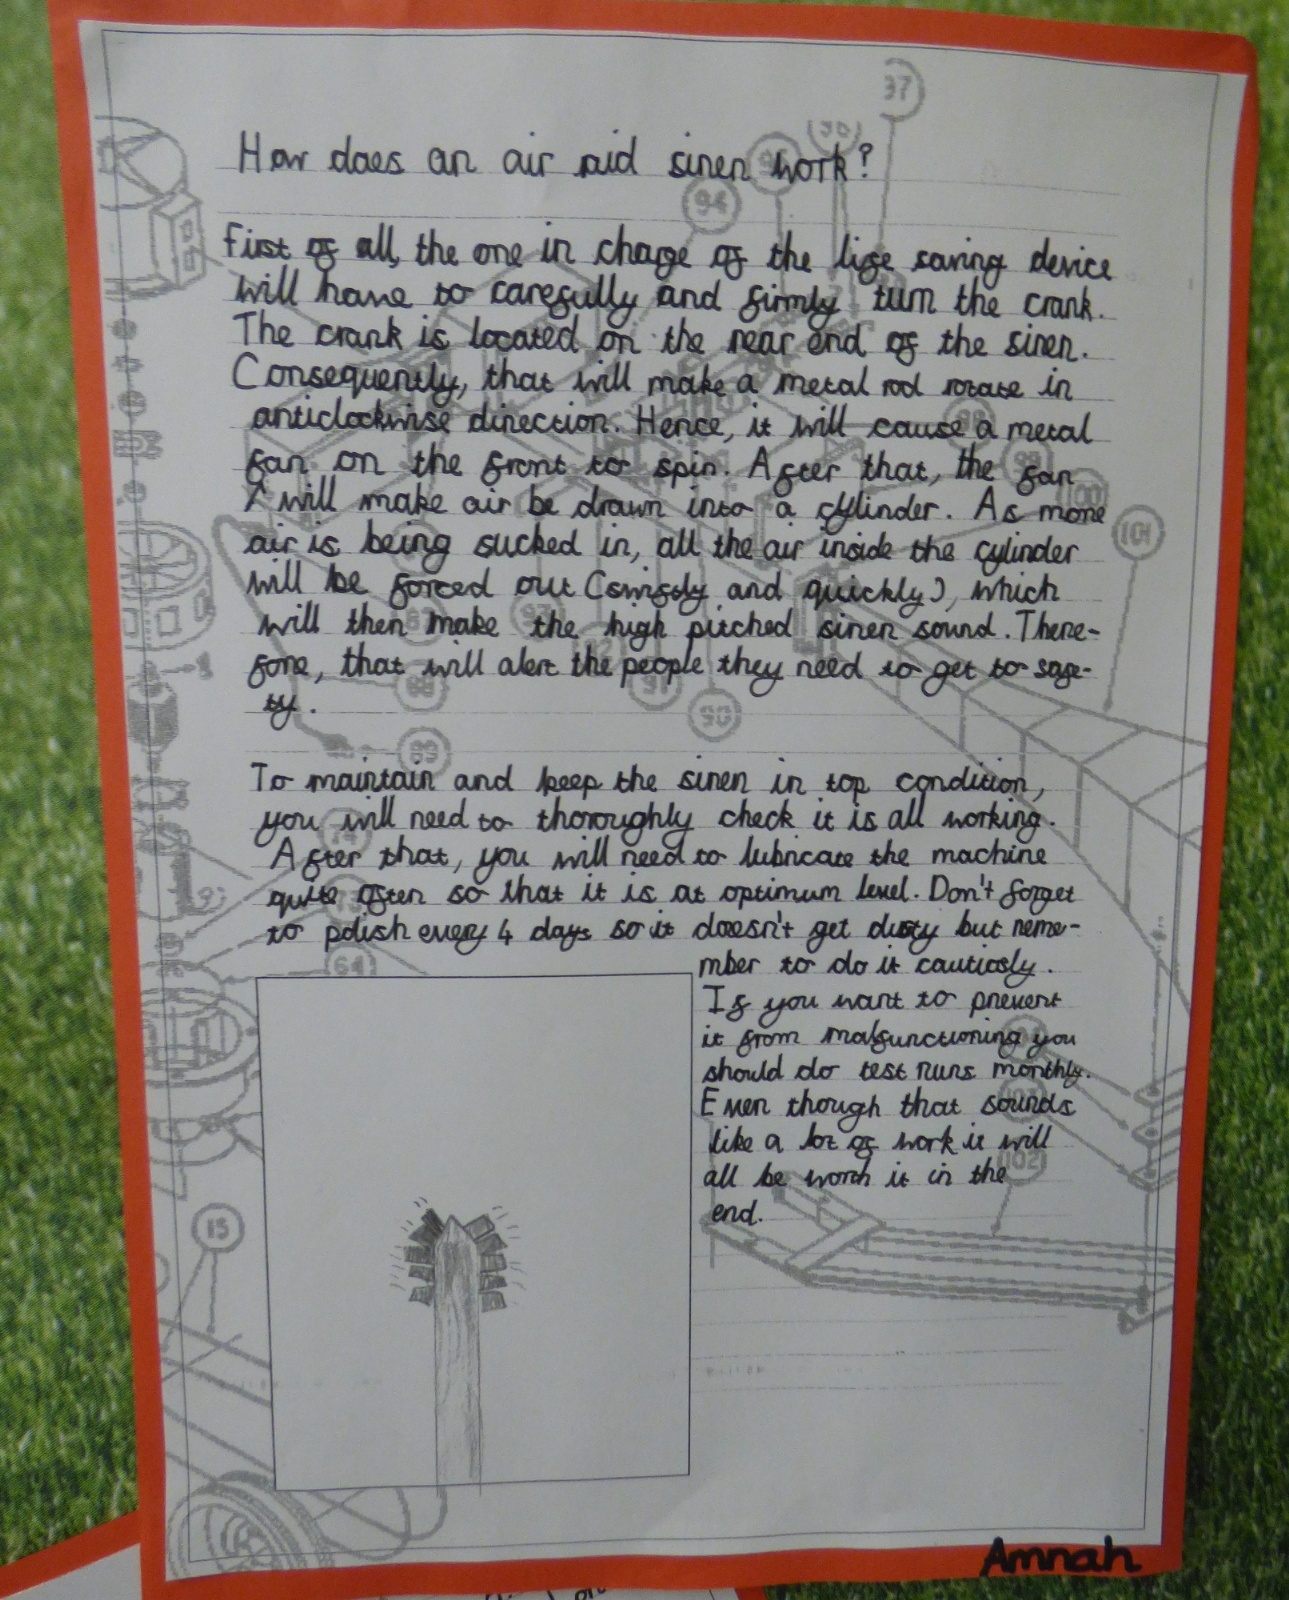 How does an air raid siren work?
First of all, the one in charge of the life saving device
will have to carefully and firmly turn the crank.
The crank is located on the rear end of the siren.
Consequently, that will make a metal rod rotate in
anticlockwise direction. Hence, it will cause a metal
fan on the front to spin. After that, the fan
will make air be drawn into a cylinder. As more
air is being sucked in, all the air inside the cylinder
will be forced out (swiftly and quickly), which
will then make the high pitched siren sound. There-
fore, that will alert the people they need to get to safe-
ty.
To maintain and keep the siren in top condition,
you will need to thoroughly check it is all working.
After that, you will need to lubricate the machine
quite often so that it is at optimum level. Don't forget
to polish every 4 days so it doesn't get dusty but reme-
mber to do it cautiosly.
If you want to prevent
it from malfunctioning you
should do test runs monthly.
Even though that sounds
like a lot of work it will
all be worth it in the
end.
37
94
101
100
90
91
89
88
74
73
64
15
102
103
Amnah